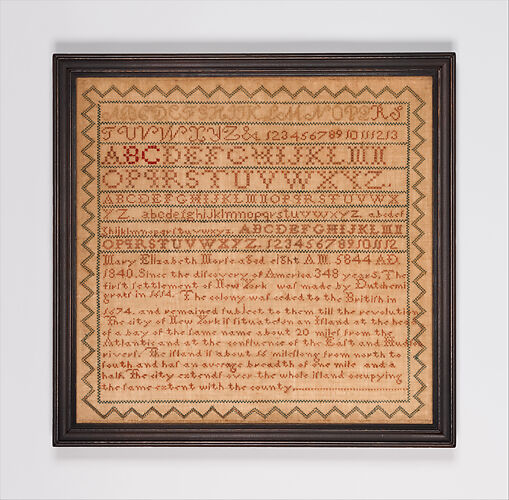 ABCDEFGHIJKLMNOPQRS
TUVWXYZ& 1 2 3 4 5 6 7 8 9 10 11 12 13
ABCDEFGHIJKLMN
OPQRSTUVWXYZ.
ABCDEFGHIJKLMNOPQRSTUVWX
YZ abcdefghijklmnopqrstuvwxyz. abcdef
ghijklmnopqrstuvwxyz. ABCDEFGHIJKLMN
OPQRSTUVWXYZ. 1 2 3 4 5 6 7 8 9 10 11 12
Mary Elizabeth Morse aged eight A M 5844 AD
1840. Since the diſcovery of America 348 years. The
firſt ſettlement of New York was made by Dutchemi
grats in 1614. The colony was ceded to the Britiſh in
1674. and remained ſubject to them till the revolution
The city of New York iſ ſituated on an Iſland at the he
of a bay of the ſame name about 20 mileſ from the
Atlantic and at the confluence of the Eaſt and Hud
riverſ. The iſland iſ about 15 mileſ long from north to
ſouth and haſ an average breadth of one mile and a
half. The city extendſ over the whole iſland occupying
the ſame extent with the county